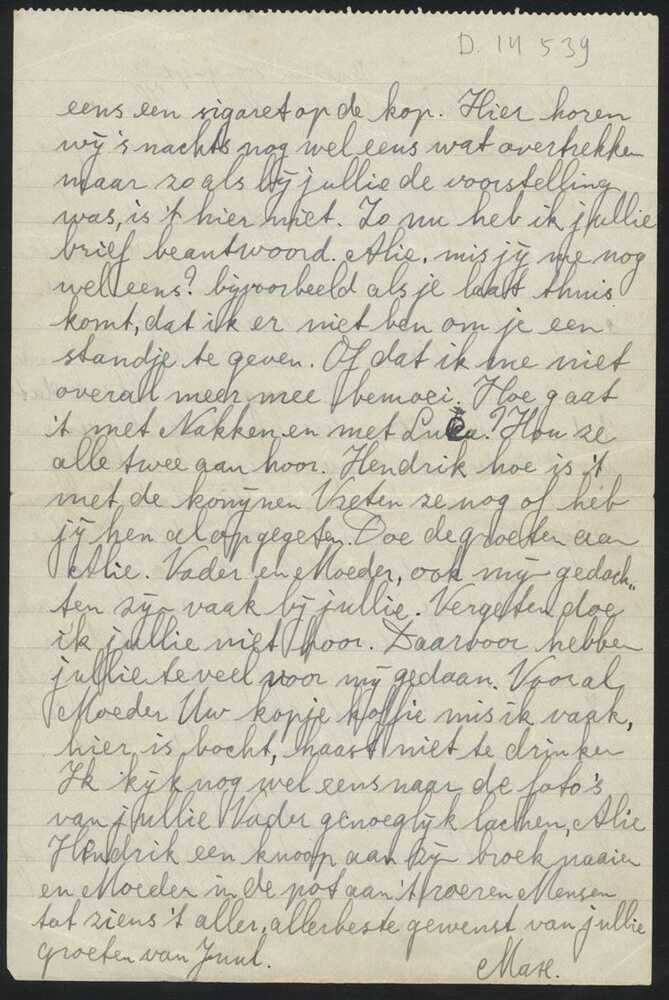 D. 14 539
eens een sigaret op de kop. Hier horen
wij 's nachts nog wel eens wat overtrekken
maar zoals bij jullie de voorstelling
was, is 't hier niet. Zo nu heb ik jullie
brief beantwoord. Alie, mis jij me nog
wel eens? bijvoorbeeld als je laat thuis
komt, dat ik er niet ben om je een
standje te geven. Of dat ik me niet
overal meer mee bemoei. Hoe gaat
't met Nakken en met ? Hou ze
alle twee aan hoor. Hendrik hoe is 't
met de konijnen Vreten ze nog of heb
jij hen al opgegeten. Doe de groeten aan
Alie. Vader en Moeder, ook mijn gedach„
ten zijn vaak bij jullie. Vergeten doe
ik jullie niet hoor. Daarvoor hebben
jullie te veel voor mij gedaan. Vooral
Moeder Uw kopje koffie mis ik vaak,
hier is bocht, haast niet te drinken
Ik kijk nog wel eens naar de foto's
van jullie Vader genoeglijk lachen, Alie
Hendrik een knoop aan zijn broek naaien
en Moeder in de pot aan 't roeren Mensen
tot ziens 't aller, allerbeste gewenst van jullie
groeten van Juul. Max.